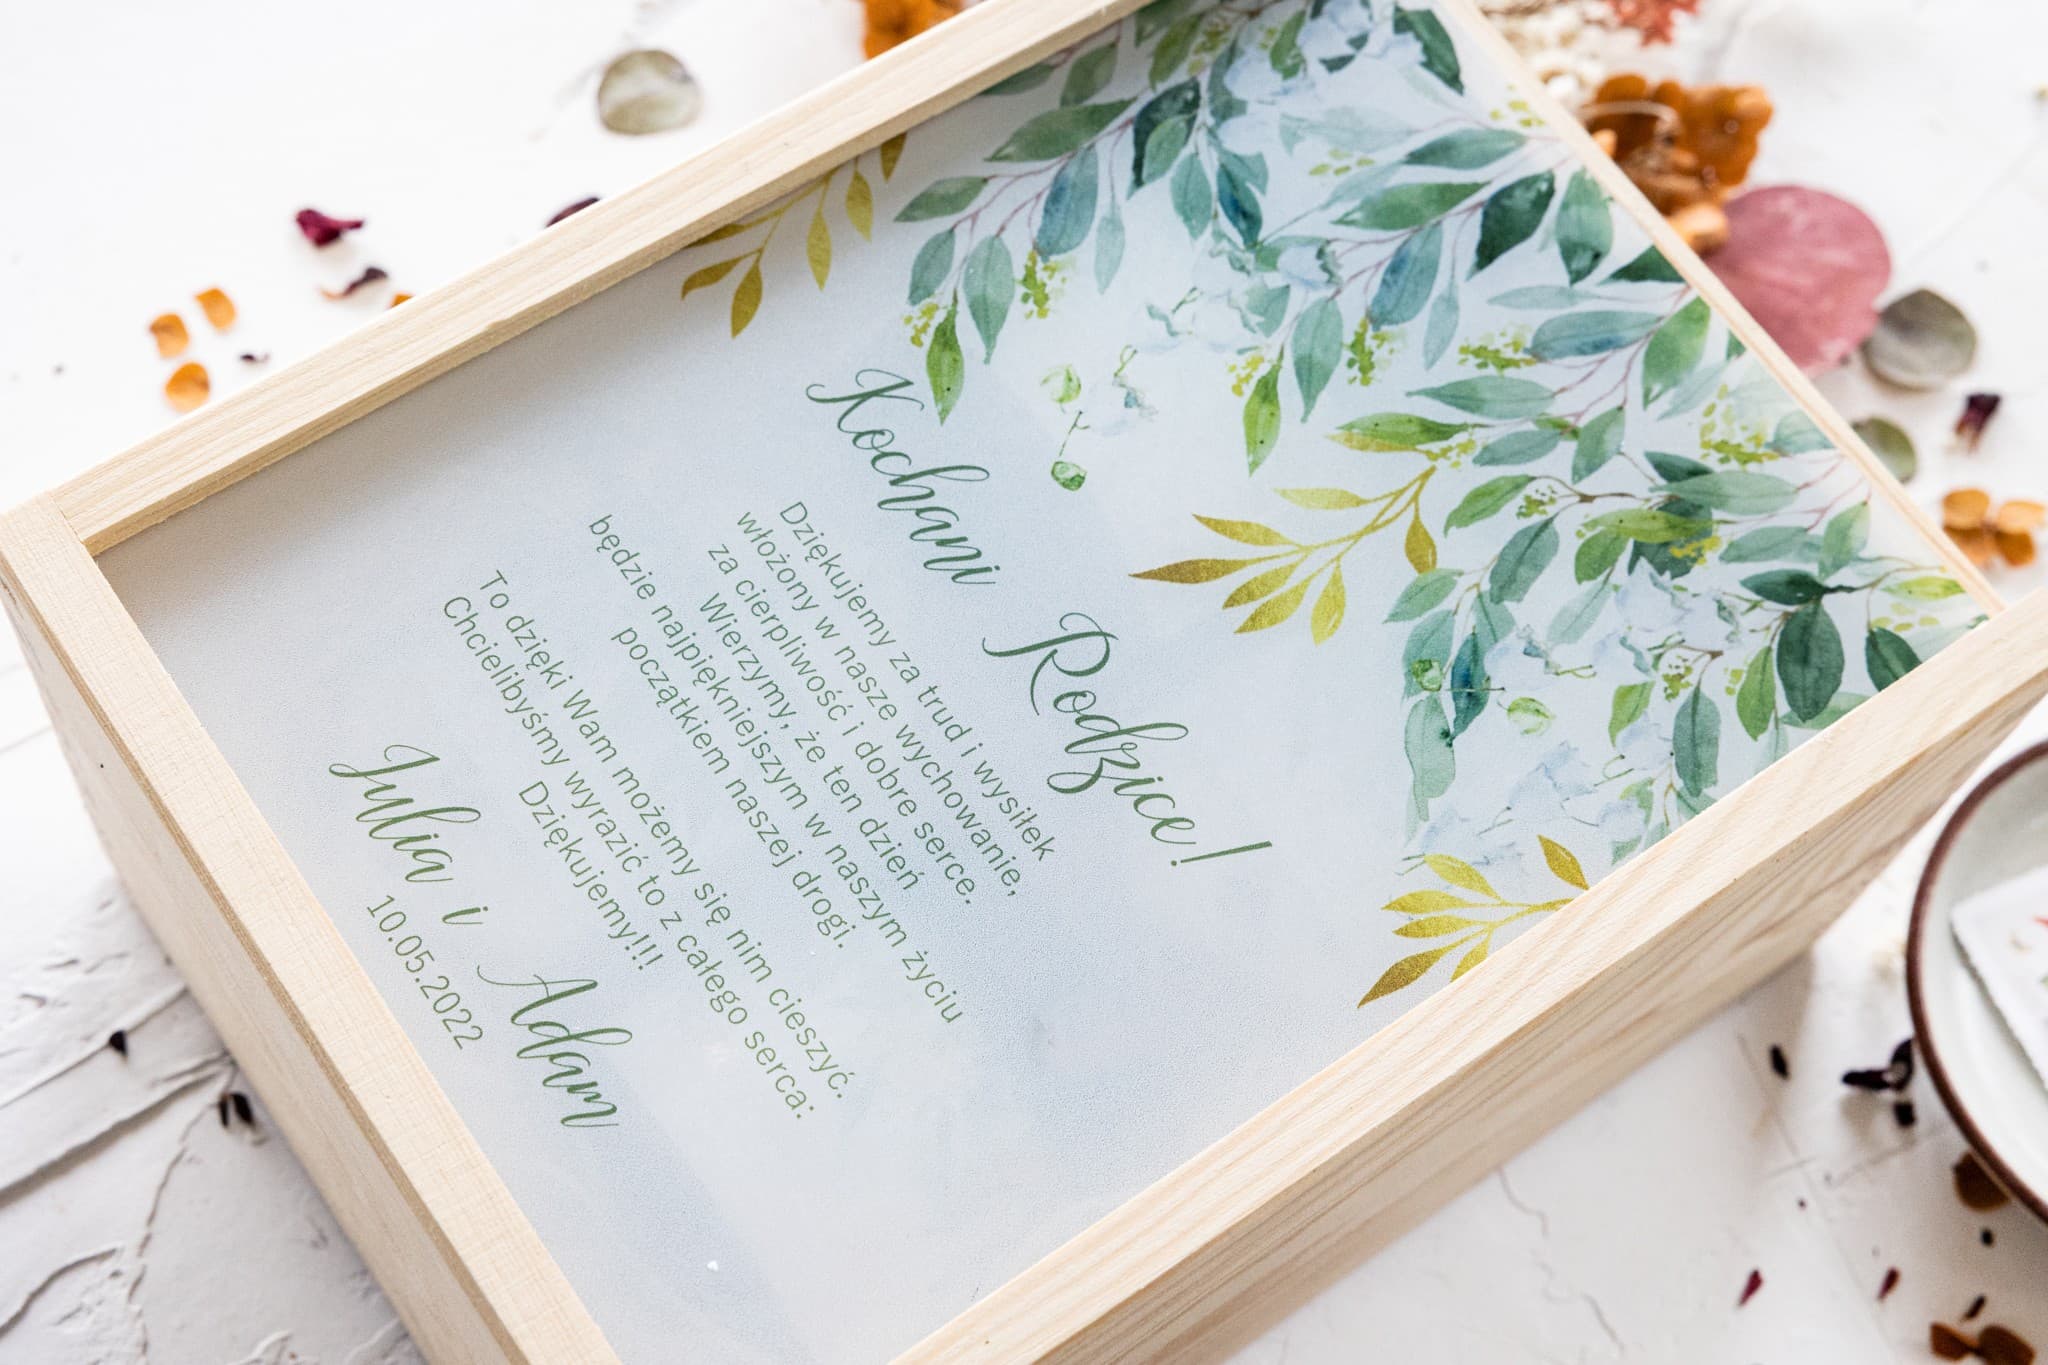 Kochani Rodzice!
Dziękujemy za trud i wysiłek
włożony w nasze wychowanie,
za cierpliwość i dobre serce.
Wierzymy, że ten dzień
będzie najpiękniejszym w naszym życiu
początkiem naszej drogi.
To dzięki Wam możemy się nim cieszyć.
Chcielibyśmy wyrazić to z całego serca:
Dziękujemy!!!
Julia i Adam
10.05.2022